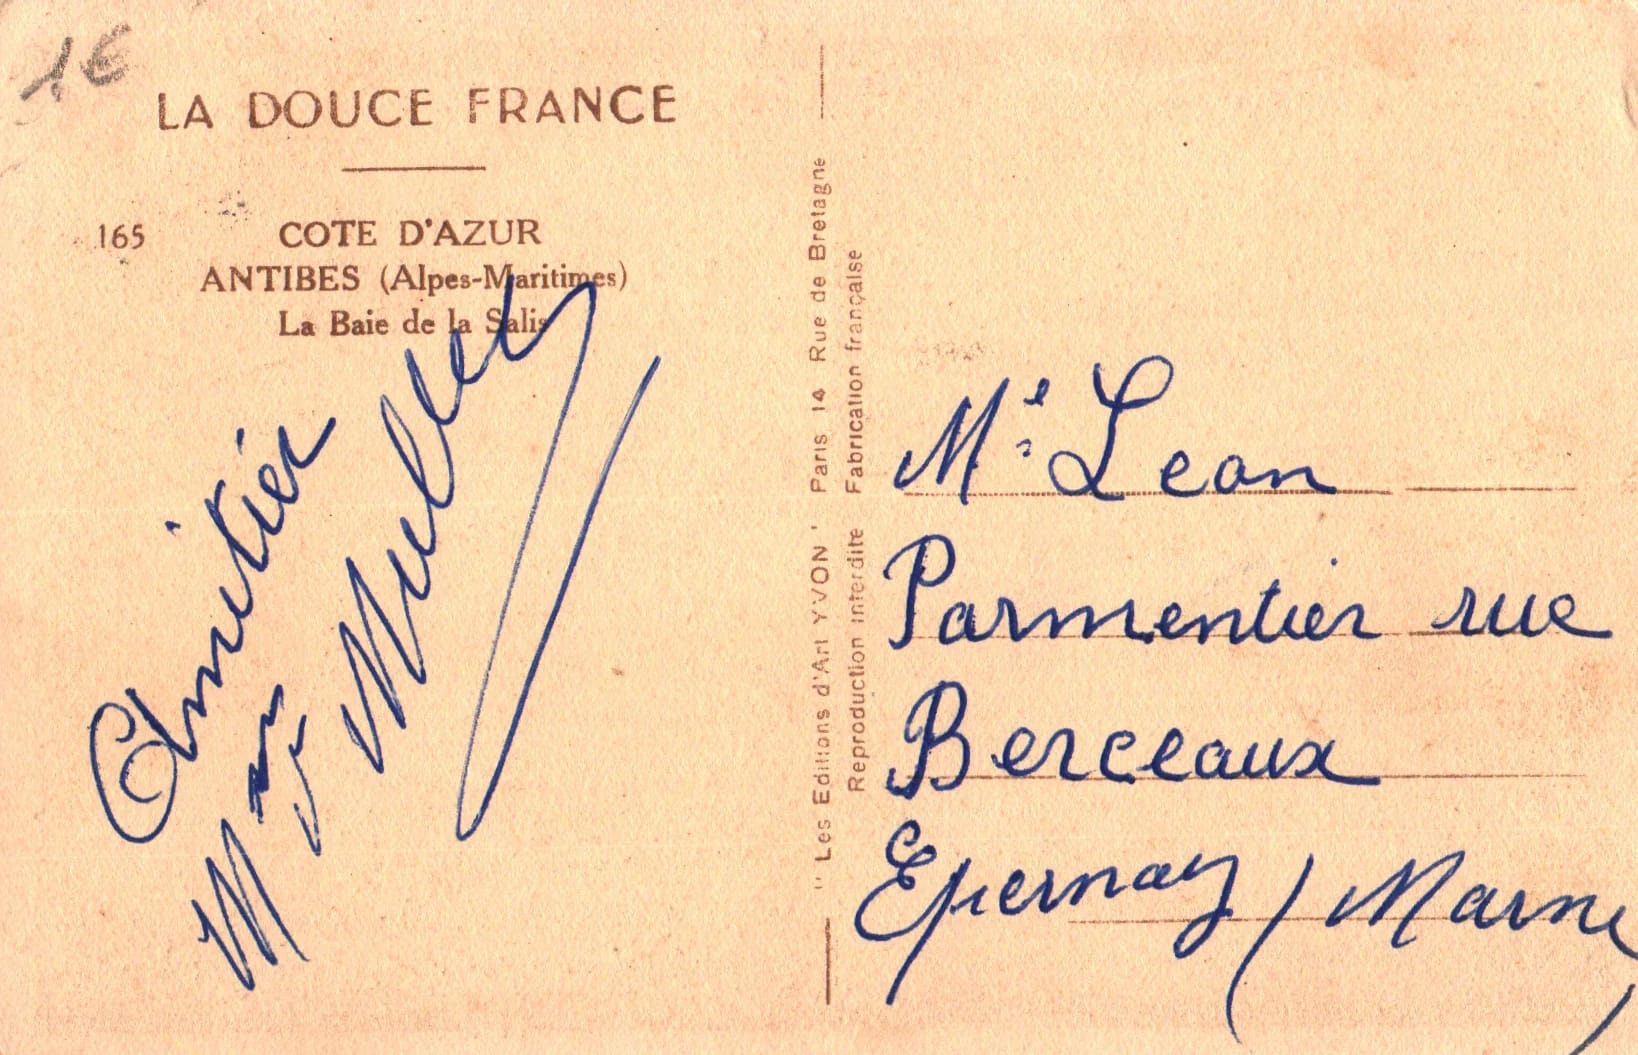 1€
LA DOUCE FRANCE
165
COTE D'AZUR
ANTIBES (Alpes-Maritimes)
La Baie de la Salis
Amitiés
Muller
" Les Editions d'Art YVON " Paris 14 Rue de Bretagne
Reproduction interdite Fabrication française
Leon
Parmentier rue
Berceaux
Epernay (Marne)